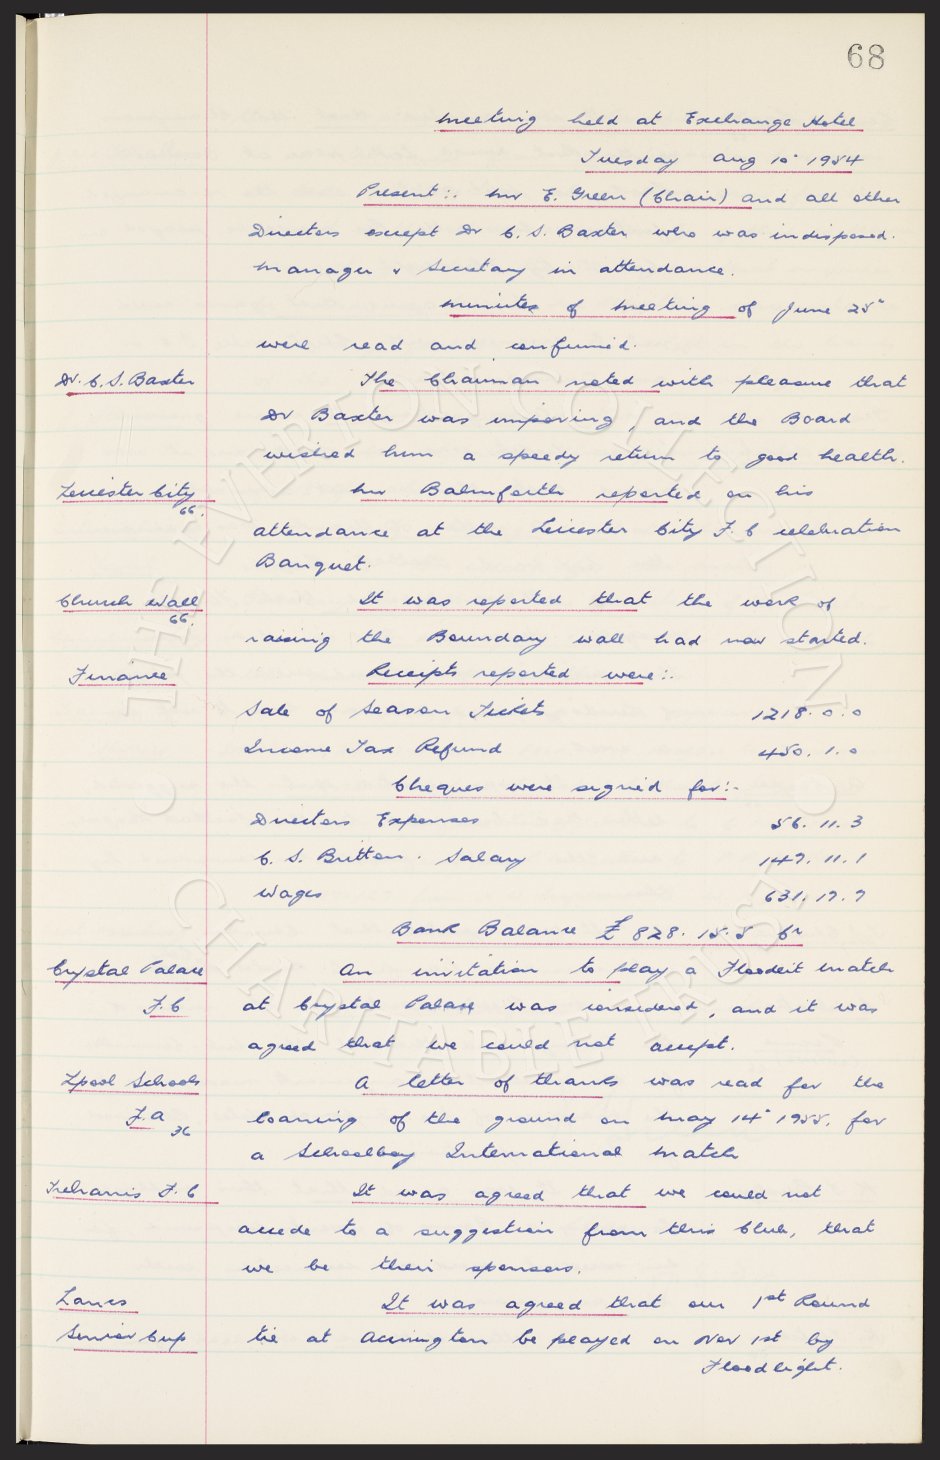 68
Meeting held at Exchange Hotel
Tuesday Aug 10" 1954
Present:. Mr E. Green (Chair) and all other
Directors except Dr C. S. Baxter who was indisposed.
Manager & Secretary in attendance.
Minutes of Meeting of June 25"
were read and confirmed.
Dr. C. S. Baxter The Chairman noted with pleasure that
Dr Baxter was improving, and the Board
wished him a speedy return to good health.
Leicester City Mr Balmforth reported on his
66. attendance at the Leicester City F. C celebration
Banquet.
Church Wall It was reported that the work of
66. raising the Boundary wall had now started.
Finance Receipts reported were:.
Sale of Season Tickets 1218. 0. 0
Income Tax Refund 450. 1. 0
Cheques were signed for:-
Directors Expenses 56. 11. 3
C. S. Britton. Salary 147. 11. 1
Wages 631. 17. 7
Bank Balance £ 828. 15. 5 Cr
Crystal Palace An invitation to play a Floodlit match
F. C at Crystal Palace was considered, and it was
agreed that we could not accept.
Lpool Schools A letter of thanks was read for the
F. A 36 loaning of the ground on May 14" 1955, for
a Schoolboy International Match
F. C It was agreed that we could not
accede to a suggestion from this Club, that
we be their sponsors.
Lancs It was agreed that our 1st Round
Senior Cup tie at Accrington be played on Nov 1st by
Floodlight.
THE EVERTON COLLECTION
CHARITABLE TRUST